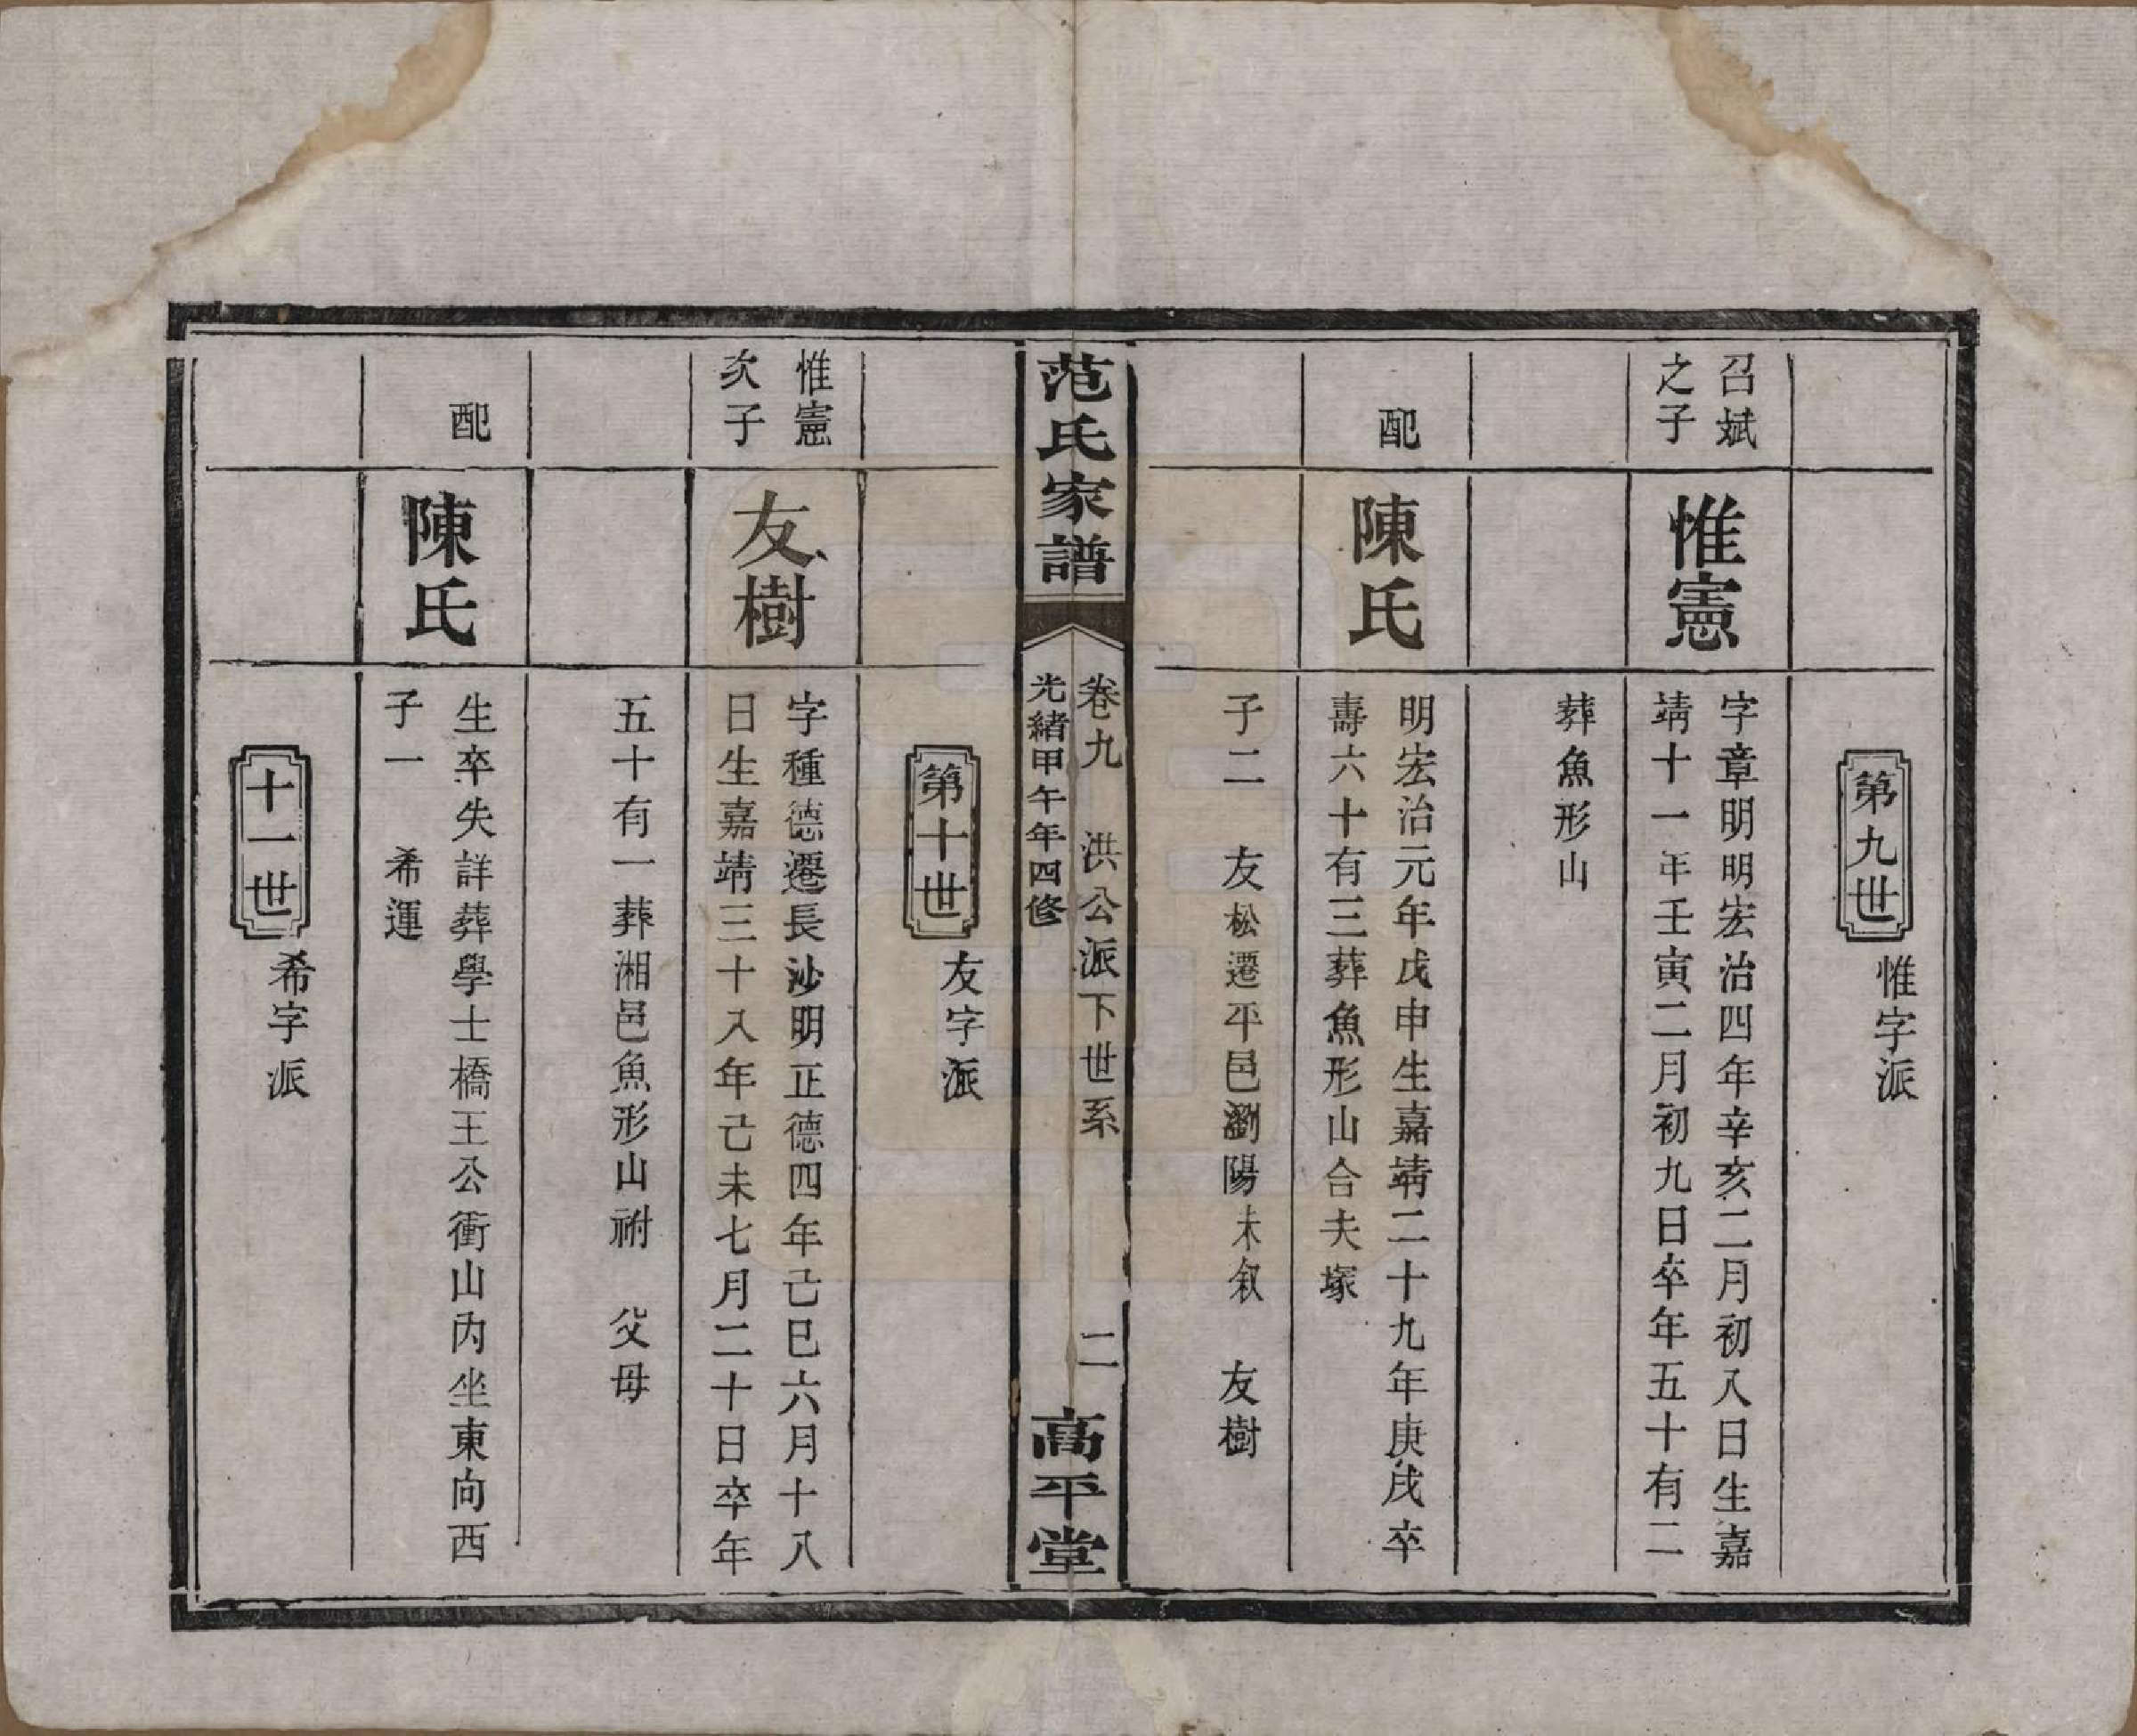 第九世 惟字派
召斌
之子
惟憲
字章明明宏治四年辛亥二月初八日生嘉
靖十一年壬寅二月初九日卒年五十有二
葬魚形山
配
陳氏
明宏治元年戊申生嘉靖二十九年庚戌卒
壽六十有三葬魚形山合夫塚
子二 友松遷平邑瀏陽未叙 友樹
范氏家譜
卷九 洪公派下世系 二
光緒甲午年四修
高平堂
第十世 友字派
惟憲
次子
友樹
字種德遷長沙明正德四年己巳六月十八
日生嘉靖三十八年己未七月二十日卒年
五十有一葬湘邑魚形山祔 父母
配
陳氏
生卒失詳葬學士橋王公衝山內坐東向西
子一 希運
十一世 希字派